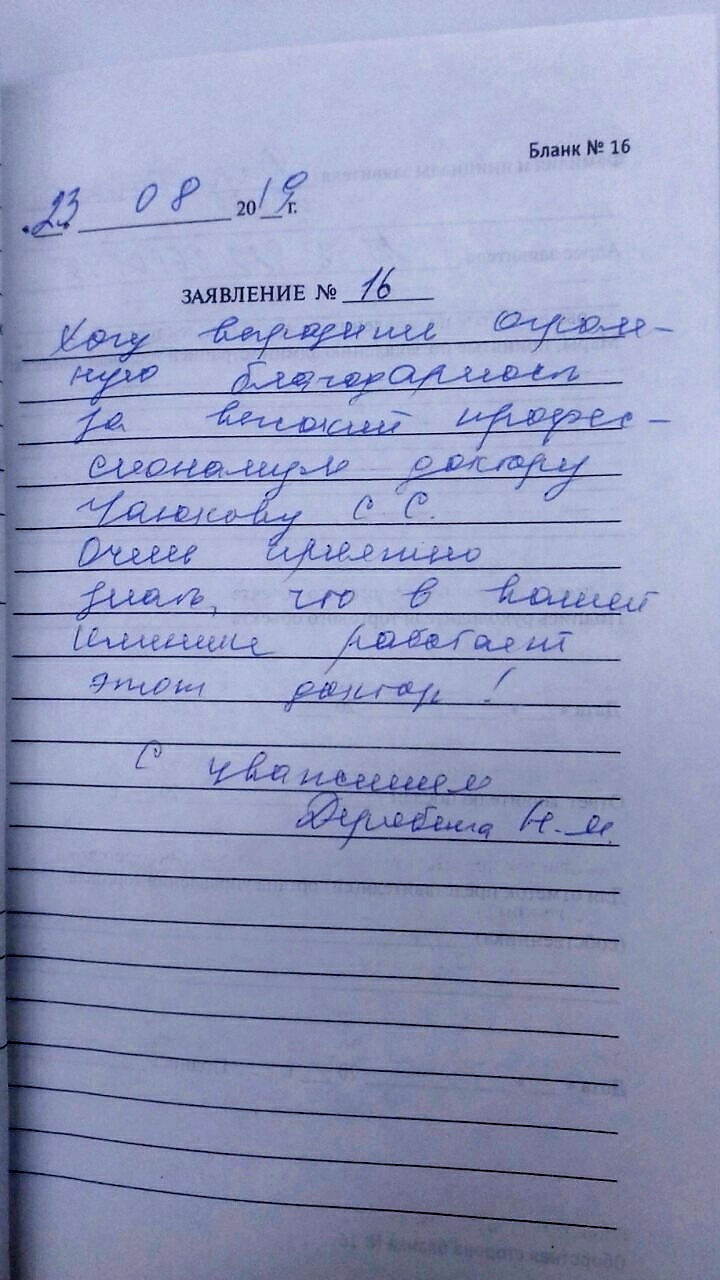 Бланк № 16
23 08 2019 г.
ЗАЯВЛЕНИЕ № 16
Хочу выразить огром-
ную благодарность
за высокий профес-
сионализм доктору
С. С.
Очень приятно
знать, что в вашей
клинике работает
этот доктор!
С уважением
Н. И.